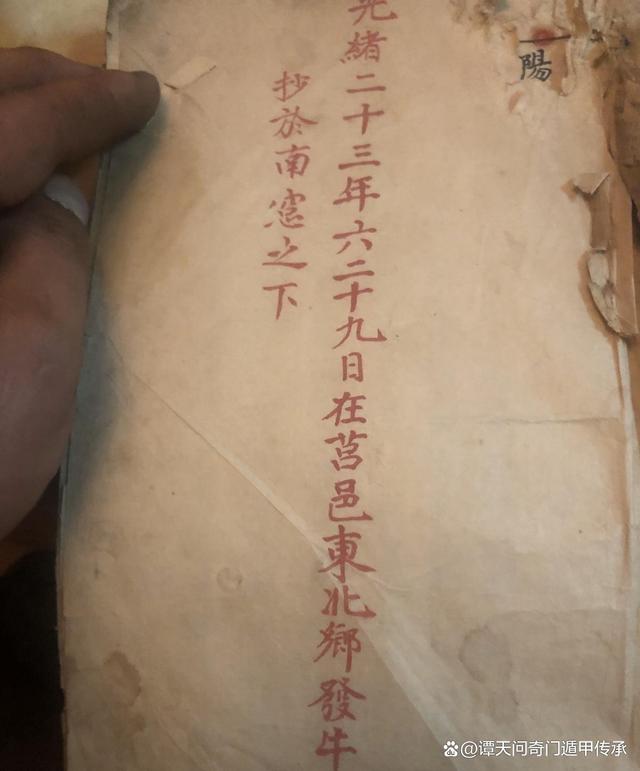 陽
光緒二十三年六二十九日在莒邑東北鄉發牛
抄於南窓之下
@谭天问奇门遁甲传承